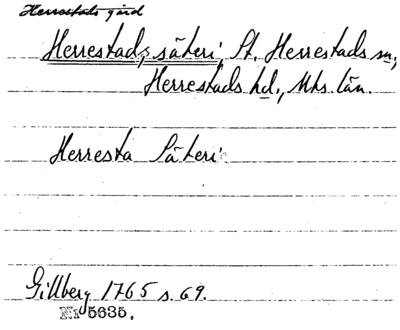 Herrestads gård
Herrestads säteri, St. Herrestads sn,
Herrestads hd., Mhs. län.
Herresta Säteri
Gillberg 1765 s. 69.
Nr 5635.